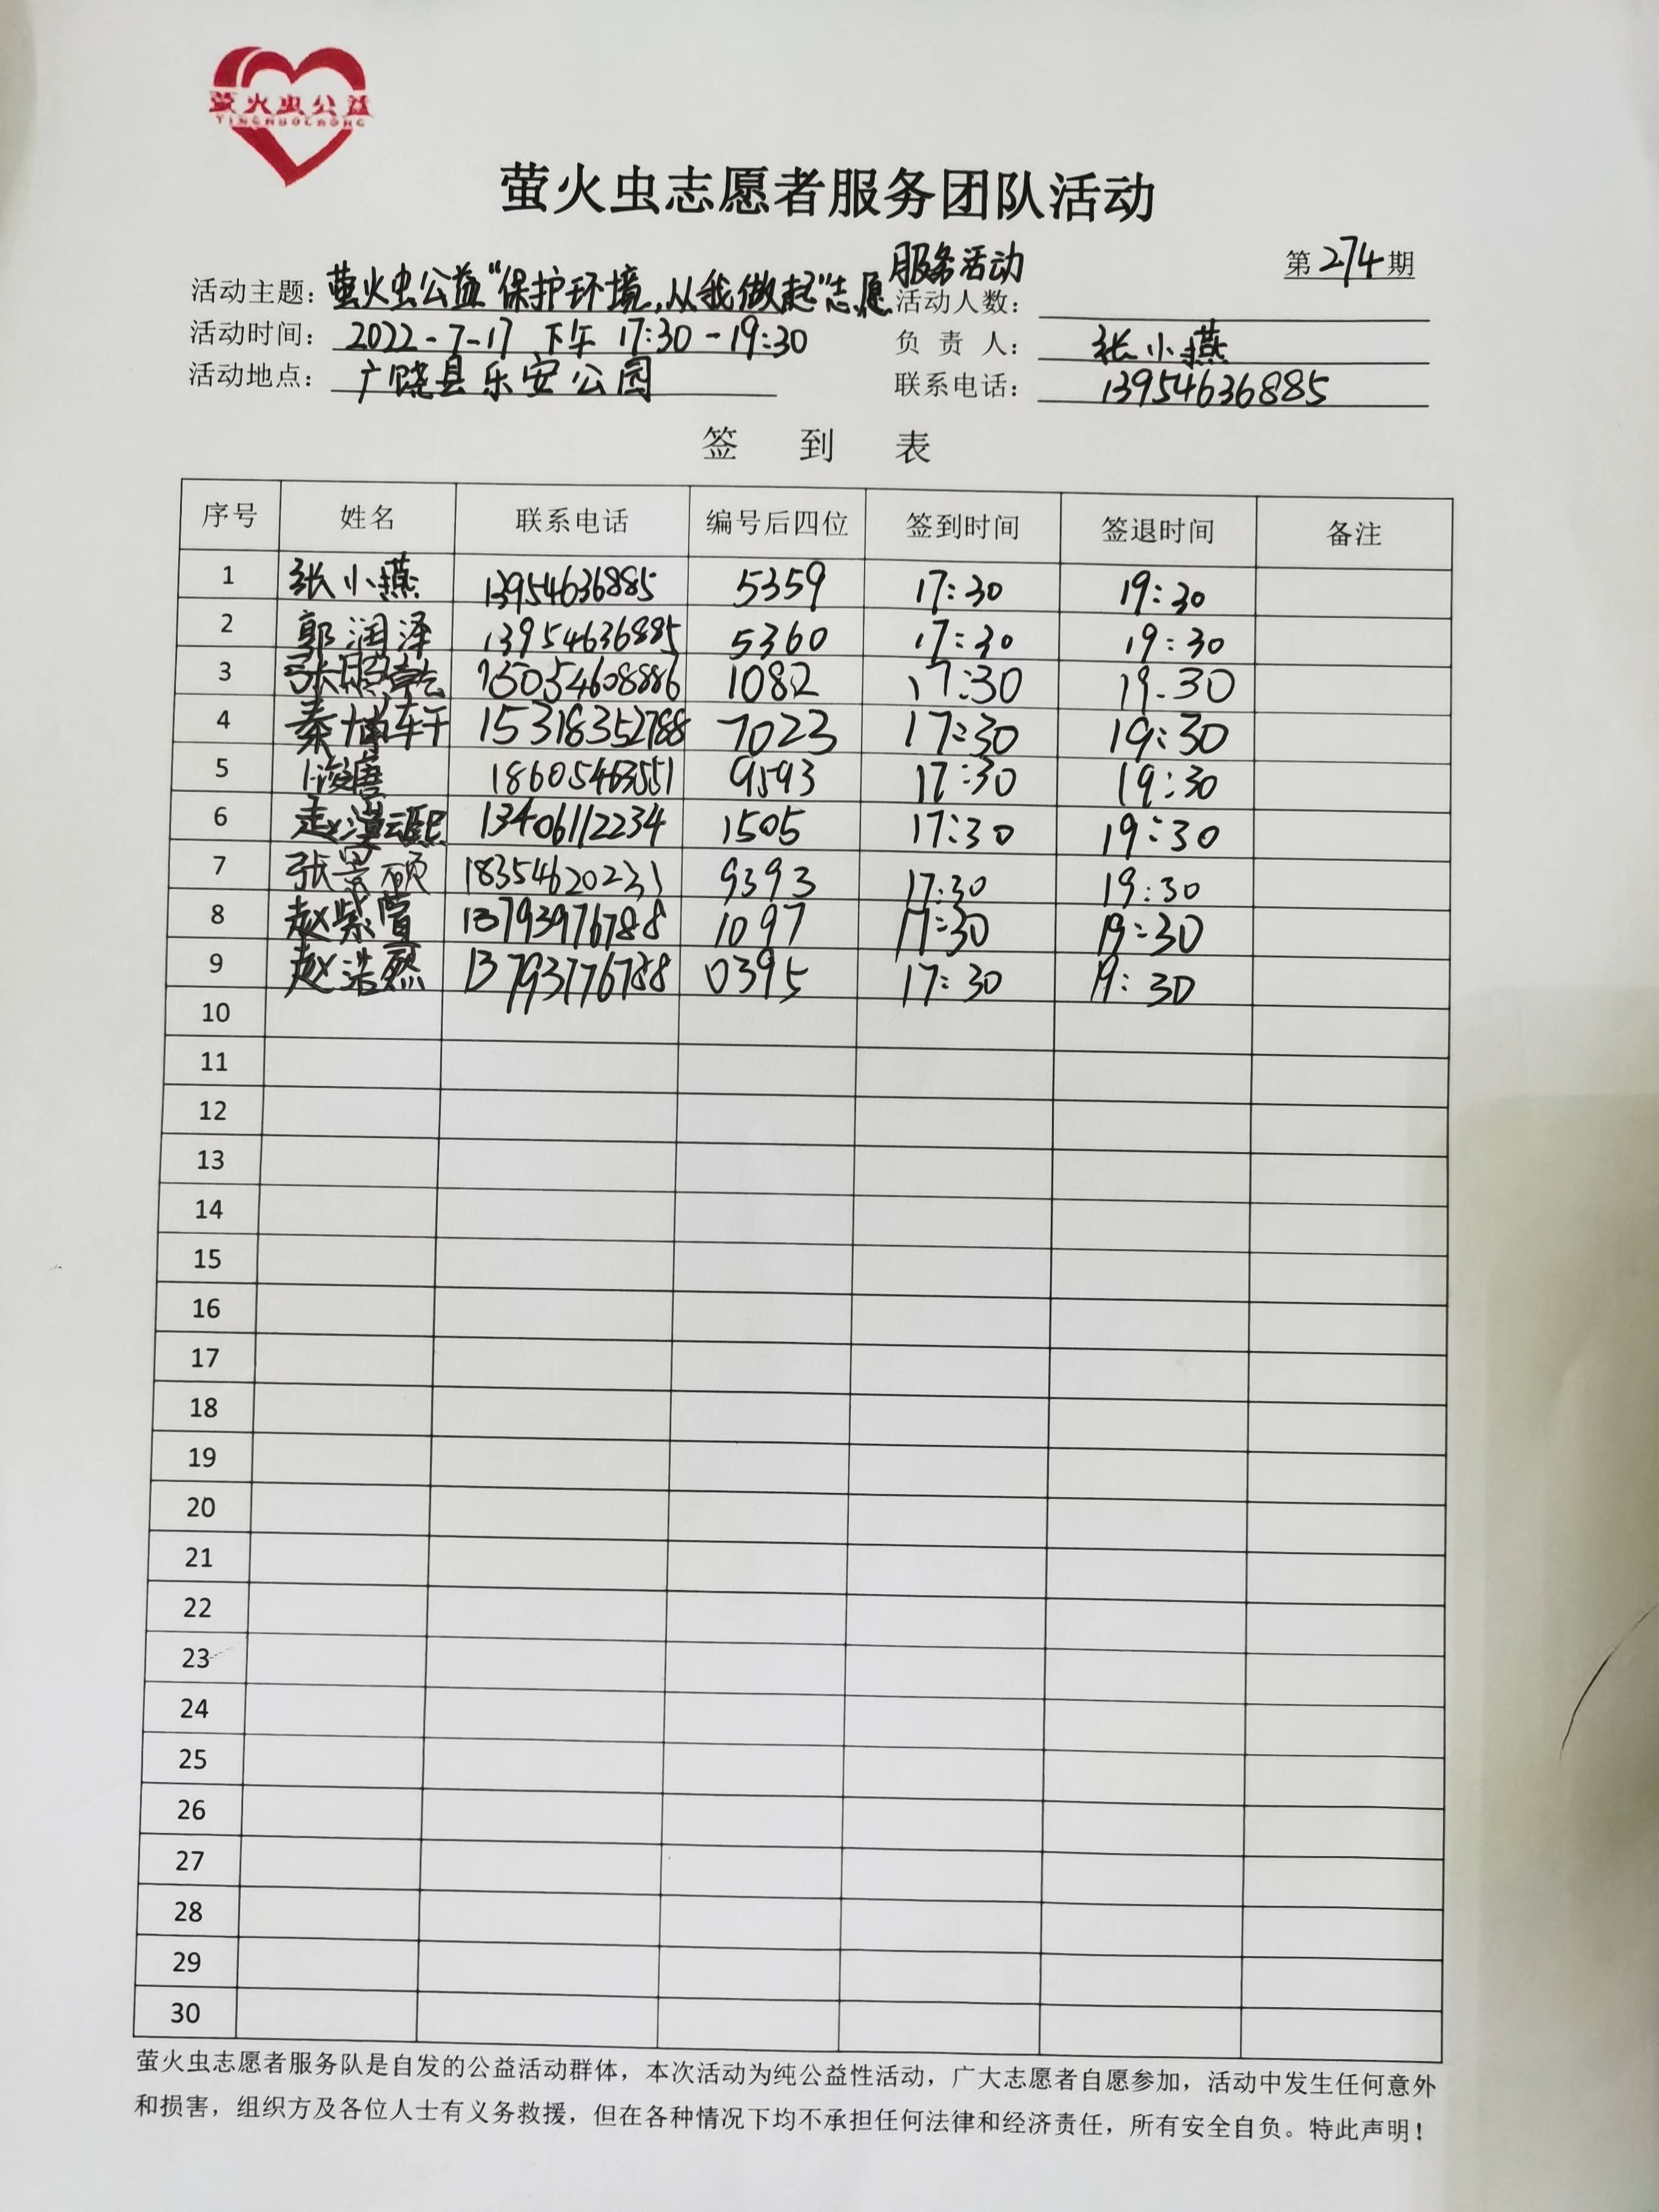 萤火虫公益
YINGHUOCHONG
萤火虫志愿者服务团队活动
第274期
活动主题：萤火虫公益“保护环境，从我做起”志愿服务活动
活动人数：
活动时间：2022-7-17 下午 17:30-19:30
负责人：张小燕
活动地点：广饶县乐安公园
联系电话：13954636885
签到表
序号 姓名 联系电话 编号后四位 签到时间 签退时间 备注
1 张小燕 13954636885 5359 17:30 19:30
2 郭润泽 13954636885 5360 17:30 19:30
3 张 15054608886 1082 17:30 19:30
4 秦 15318352788 7023 17:30 19:30
5 18605463551 9593 17:30 19:30
6 赵 13406112234 1505 17:30 19:30
7 张景硕 18354620231 9393 17:30 19:30
8 赵紫萱 13793976788 1097 17:30 19:30
9 赵浩然 13793776788 0395 17:30 19:30
10
11
12
13
14
15
16
17
18
19
20
21
22
23
24
25
26
27
28
29
30
萤火虫志愿者服务队是自发的公益活动群体，本次活动为纯公益性活动，广大志愿者自愿参加，活动中发生任何意外
和损害，组织方及各位人士有义务救援，但在各种情况下均不承担任何法律和经济责任，所有安全自负。特此声明！